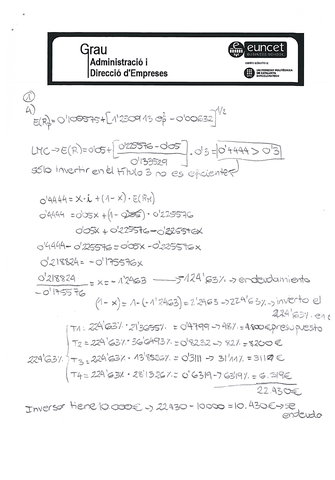 Grau
Administració i
Direcció d'Empreses
euncet
BUSINESS SCHOOL
UNIVERSITAT POLITÈCNICA
DE CATALUNYA
BARCELONATECH
①
A)
E(Rp) = 0'100575 + [1'230915 σp² - 0'00632]^1/2
LMC → E(R) = 0'05 + [0'225576 - 0'05 / 0'133529] · 0'3 = 0'4444 > 0'3
sólo invertir en el título 3 no es eficiente
0'4444 = x · i + (1 - x) · E(RM)
0'4444 = 0'05x + (1 - x) · 0'225576
0'05x + 0'225576 - 0'225576x
0'4444 - 0'225576 = 0'05x - 0'225576x
0'218824 = -0'175576x
0'218824 / -0'175576 = x = -1'2463 → 124'63% → endeudamiento
(1 - x) = 1 - (-1'2463) = 2'2463 → 224'63% → invierto el
224'63% en
224'63%
T1 = 224'63% · 21'3655% = 0'4799 → 48% = 4800€ presupuesto
T2 = 224'63% · 36'6493% = 0'8232 → 82% = 8200€
T3 = 224'63% · 13'8526% = 0'3111 → 31'11% = 3111€
T4 = 224'63% · 28'1326% = 0'6319 → 63'19% = 6.319€
22.430€
Inversor tiene 10.000€ → 22430 - 10000 = 10.430€ → se
endeuda